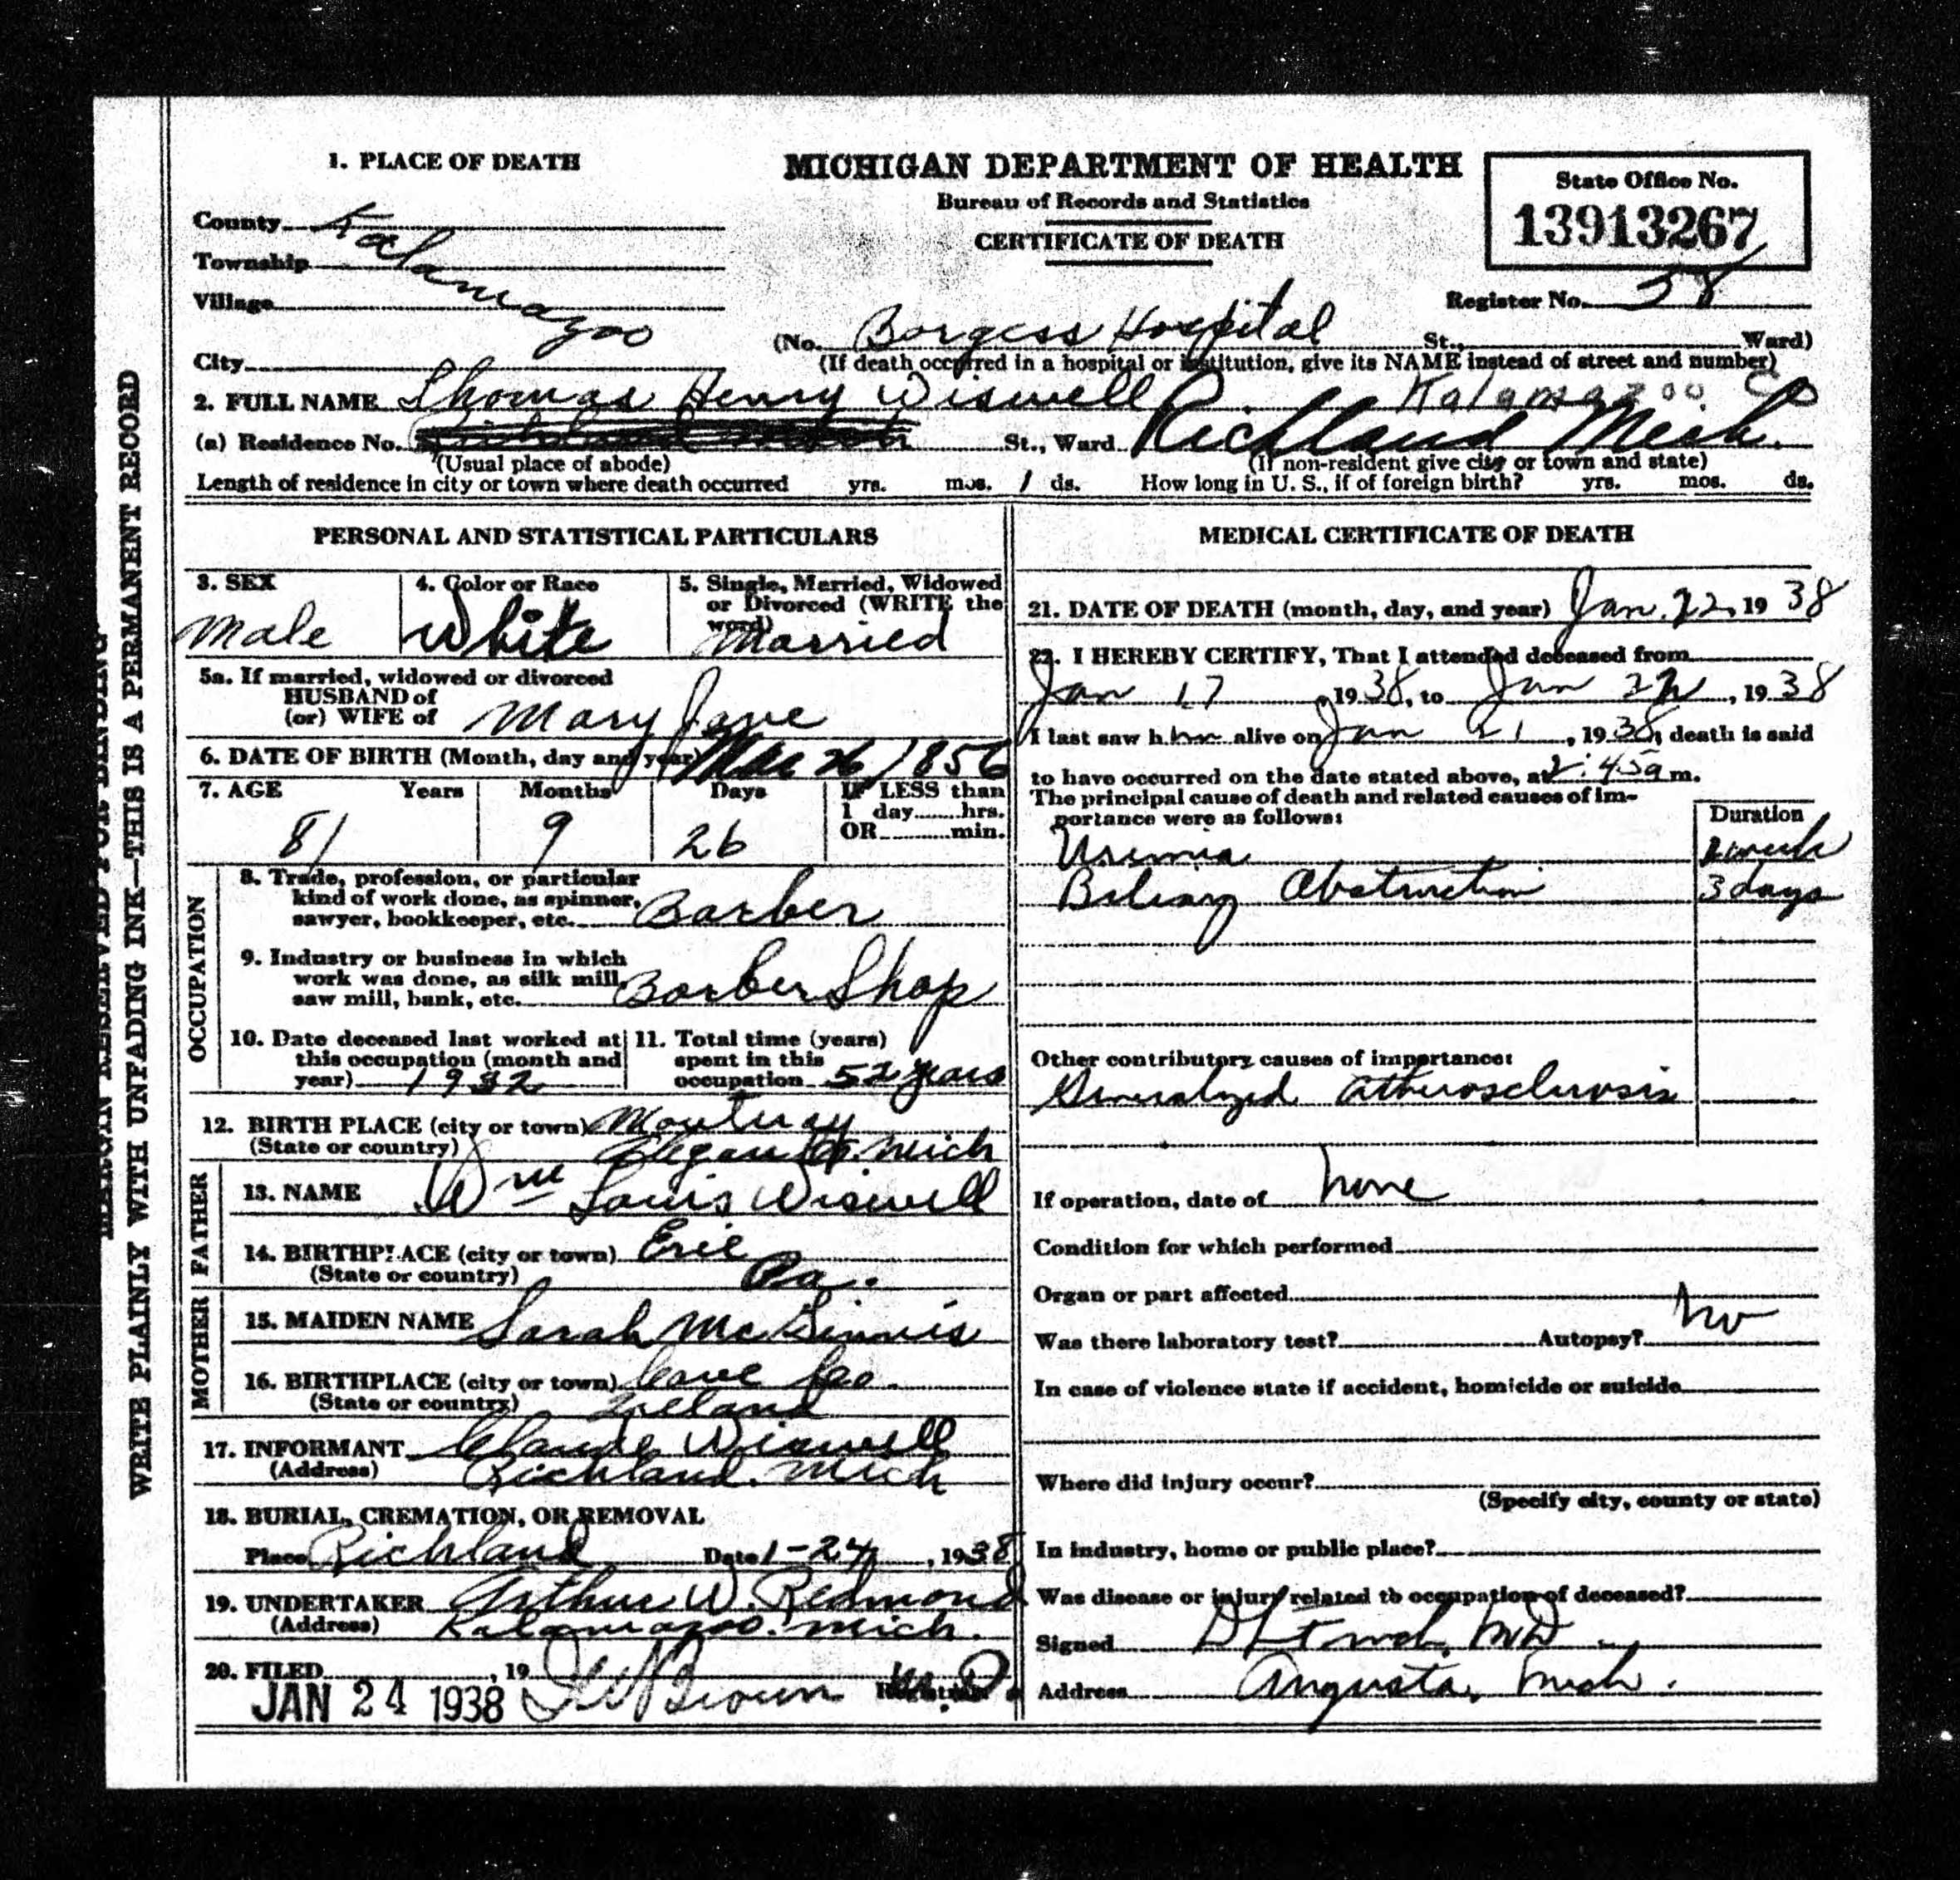 1. PLACE OF DEATH
County Kalamazoo
Township
Village
City
MICHIGAN DEPARTMENT OF HEALTH
Bureau of Records and Statistics
CERTIFICATE OF DEATH
State Office No.
13913267
Register No. 58
(No. Borgess Hospital St., Ward)
(If death occurred in a hospital or institution, give its NAME instead of street and number)
2. FULL NAME Thomas Henry Wiswell Kalamazoo Co
(a) Residence No. St., Ward Richland Mich.
(Usual place of abode) (If non-resident give city or town and state)
Length of residence in city or town where death occurred yrs. mos. 1 ds. How long in U. S., if of foreign birth? yrs. mos. ds.
PERSONAL AND STATISTICAL PARTICULARS
3. SEX
Male
4. Color or Race
White
5. Single, Married, Widowed
or Divorced (WRITE the
word)
Married
5a. If married, widowed or divorced
HUSBAND of
(or) WIFE of Mary Jane
6. DATE OF BIRTH (Month, day and year) Mar 26 1856
7. AGE Years Months Days IF LESS than
1 day hrs.
OR min.
81 9 26
OCCUPATION
8. Trade, profession, or particular
kind of work done, as spinner,
sawyer, bookkeeper, etc. Barber
9. Industry or business in which
work was done, as silk mill,
saw mill, bank, etc. Barber Shop
10. Date deceased last worked at
this occupation (month and
year) 1932
11. Total time (years)
spent in this
occupation 52 years
12. BIRTH PLACE (city or town)
(State or country) Mich
FATHER
13. NAME Wm Louis Wiswell
14. BIRTHPLACE (city or town) Erie
(State or country) Pa.
MOTHER
15. MAIDEN NAME Sarah McGinnis
16. BIRTHPLACE (city or town)
(State or country) Ireland
17. INFORMANT Claude Wiswell
(Address) Richland. Mich
18. BURIAL, CREMATION, OR REMOVAL
Place Richland Date 1-24, 1938
19. UNDERTAKER Arthur W. Redmond
(Address) Kalamazoo. Mich.
20. FILED , 19 Brown M.D. Registrar
JAN 24 1938
MEDICAL CERTIFICATE OF DEATH
21. DATE OF DEATH (month, day, and year) Jan. 22, 1938
22. I HEREBY CERTIFY, That I attended deceased from
Jan 17, 1938, to Jan 22, 1938
I last saw him alive on Jan 21, 1938, death is said
to have occurred on the date stated above, at 2:45a m.
The principal cause of death and related causes of im-
portance were as follows:
Duration
Uremia 1 week
Biliary Obstruction 3 days
Other contributory causes of importance:
Generalized atherosclerosis
If operation, date of none
Condition for which performed
Organ or part affected
Was there laboratory test? Autopsy? no
In case of violence state if accident, homicide or suicide
Where did injury occur?
(Specify city, county or state)
In industry, home or public place?
Was disease or injury related to occupation of deceased?
Signed MD
Address Augusta, Mich.
MARGIN RESERVED FOR BINDING
WRITE PLAINLY WITH UNFADING INK—THIS IS A PERMANENT RECORD